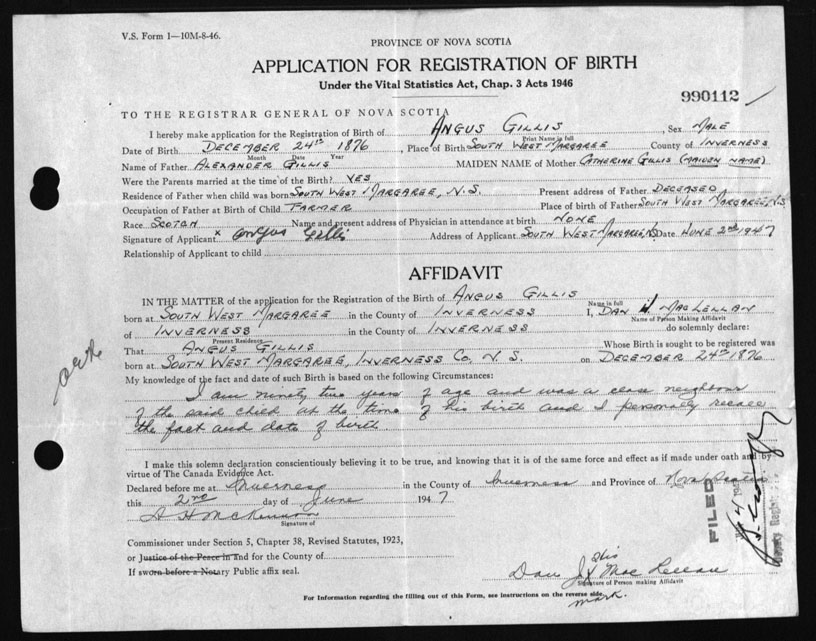 V.S. Form 1—10M-8-46.
PROVINCE OF NOVA SCOTIA
APPLICATION FOR REGISTRATION OF BIRTH
Under the Vital Statistics Act, Chap. 3 Acts 1946
990112
TO THE REGISTRAR GENERAL OF NOVA SCOTIA
I hereby make application for the Registration of Birth of ANGUS GILLIS, Sex MALE
Print Name in full
Date of Birth DECEMBER 24th 1876, Place of Birth SOUTH WEST MARGAREE County of INVERNESS
Month Date Year
Name of Father ALEXANDER GILLIS MAIDEN NAME of Mother CATHERINE GILLIS (MAIDEN NAME)
Were the Parents married at the time of the Birth? YES
Residence of Father when child was born SOUTH WEST MARGAREE, N.S. Present address of Father DECEASED
Occupation of Father at Birth of Child FARMER Place of birth of Father SOUTH WEST MARGAREE N.S.
Race SCOTCH Name and present address of Physician in attendance at birth NONE
Signature of Applicant x Angus Gillis Address of Applicant SOUTH WEST MARGAREE, N.S. Date JUNE 2nd 1947
Relationship of Applicant to child
AFFIDAVIT
IN THE MATTER of the application for the Registration of the Birth of ANGUS GILLIS
Name in full
born at SOUTH WEST MARGAREE in the County of INVERNESS I, DAN H. MACLELLAN
Name of Person Making Affidavit
of INVERNESS in the County of INVERNESS do solemnly declare:
Present Residence
That ANGUS GILLIS Whose Birth is sought to be registered was
born at SOUTH WEST MARGAREE, INVERNESS CO. N.S. on DECEMBER 24th 1876
My knowledge of the fact and date of such Birth is based on the following Circumstances:
I am ninety two years of age and was a close neighbour
of the said child at the time of his birth and I personally recall
the fact and date of birth.
I make this solemn declaration conscientiously believing it to be true, and knowing that it is of the same force and effect as if made under oath and by
virtue of The Canada Evidence Act.
Declared before me at Inverness in the County of Inverness and Province of Nova Scotia
this 2nd day of June 1947
A H McKinnon
Signature of
Commissioner under Section 5, Chapter 38, Revised Statutes, 1923,
or Justice of the Peace in and for the County of
If sworn before a Notary Public affix seal.
His
Dan X Mac Lellan
Signature of Person making Affidavit
mark.
For Information regarding the filling out of this Form, see instructions on the reverse side.
FILED